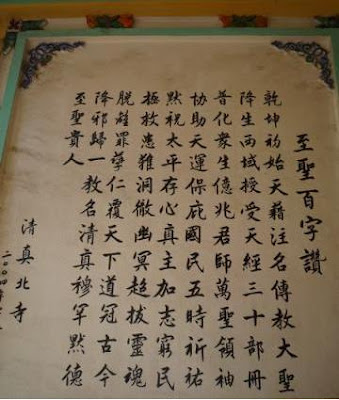 至聖百字讚
乾坤初始天藉注名傳教大聖
降生西域授受天經三十部冊
普化衆生億兆君師萬聖領袖
協助天運保庇國民五時祈祐
默祝太平存心真主加志窮民
拯救患難洞徹幽冥超拔靈魂
脱離罪孽仁覆天下道冠古今
降邪歸一教名清真穆罕默德
至聖貴人
清真北寺
二〇〇四